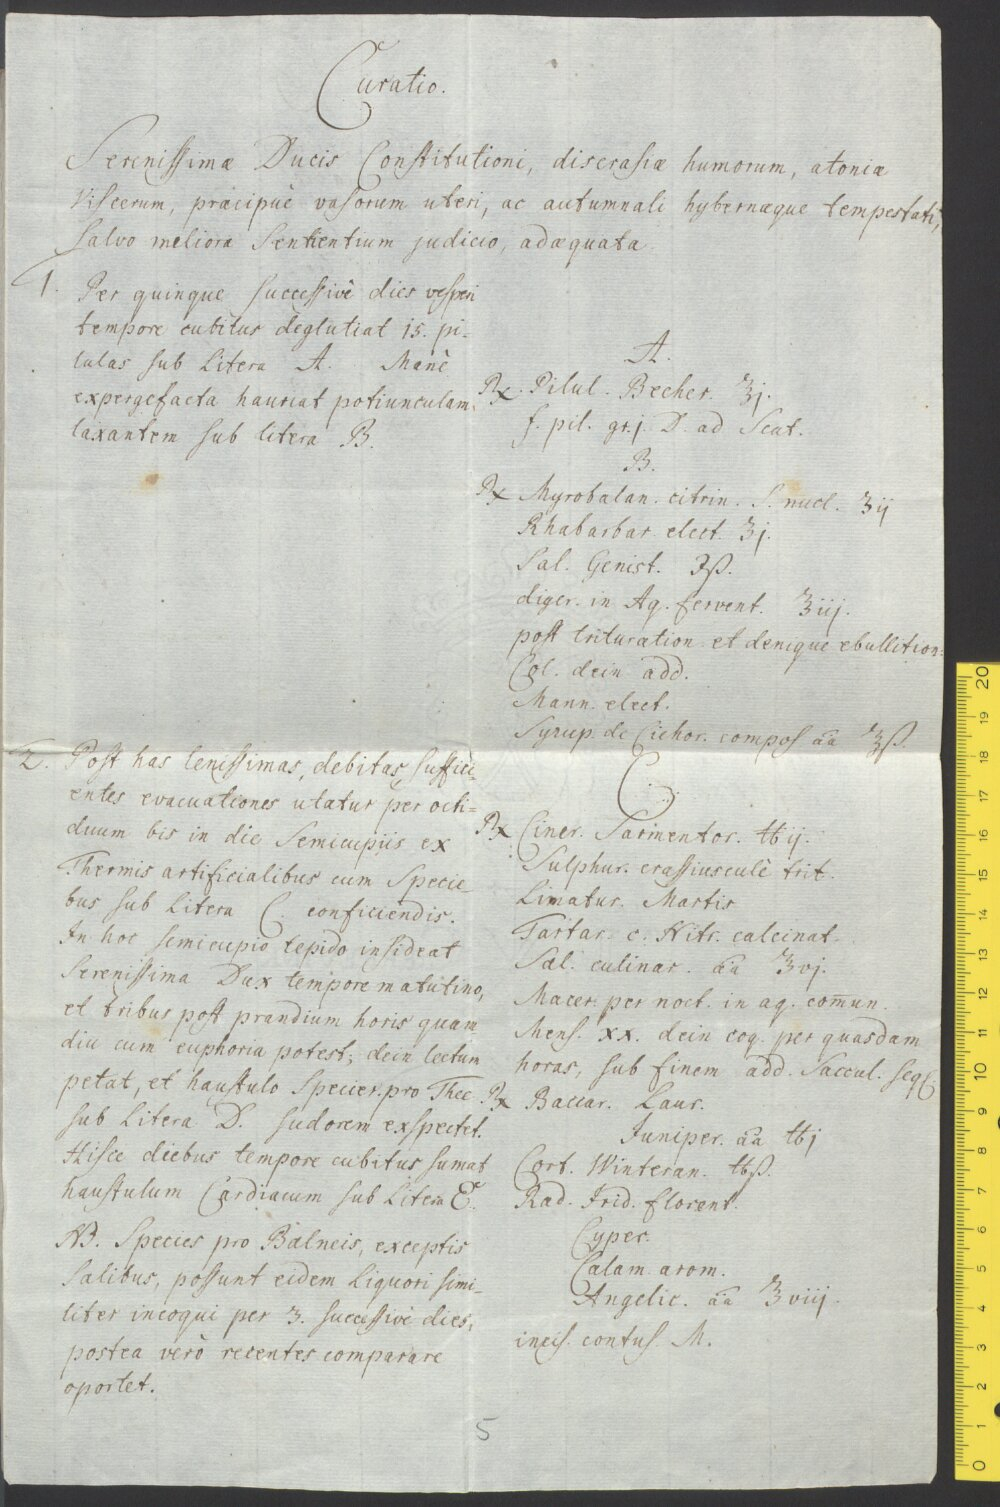 Curatio.
Serenissimæ Ducis Constitutioni, discrasiæ humorum, atoniæ
viscerum, præcipuè vasorum uteri, ac autumnali hybernæque tempestati,
salvo meliora sentientium judicio, adæquata.
1. Per quinque successivè dies vesperi
tempore cubitus deglutiat 15. pi-
lulas sub Litera A. Manè
expergefacta hauriat potiunculam
laxantem sub litera B.
A.
℞. Pilul. Becher. ʒj.
f. pil. gr. j. D. ad Scat.
B.
℞ Myrobalan. citrin. S. nucl. ʒij
Rhabarbar. elect. ʒj.
Sal. Genist. ℈ß.
diger. in Aq. fervent. ℥iij.
post trituration. et denique ebullition:
Col. dein add.
Mann. elect.
Syrup. de Cichor. compos. āā ℥ß.
2. Post has lenissimas, debitas, suffici-
entes evacuationes utatur per octi=
duum bis in die Semicupiis ex
Thermis artificialibus cum Specie-
bus sub Litera C. conficiendis.
In hoc semicupio tepido insideat
Serenissima Dux tempore matutino,
et tribus post prandium horis quam
diu cum euphoria potest; dein lectum
petat, et haustulo Specier. pro Thee
sub Litera D. sudorem exspectet.
Hisce diebus tempore cubitus sumat
haustulum Cardiacum sub Litera E.
NB. Species pro Balneis, exceptis
Salibus, possunt eidem Liquori simi-
liter incoqui per 3. successivè dies,
postea verò recentes comparare
oportet.
C.
℞ Ciner. Sarmentor. ℔ij.
Sulphur. crassiusculè trit.
Limatur. Martis
Tartar. c. Nitr. calcinat.
Sal. culinar. āā ℥vj.
Macer. per noct. in aq. com̄un.
Mens. XX. dein coq. per quasdam
horas, sub finem add. Saccul. seq.
℞ Baccar. Laur.
Juniper. āā ℔j
Cort. Winteran. ℔ß.
Rad. Irid. florent.
Cyper.
Calam. arom.
Angelic. āā ℥viij.
incis. contus. M.
5
0 1 2 3 4 5 6 7 8 9 10 11 12 13 14 15 16 17 18 19 20